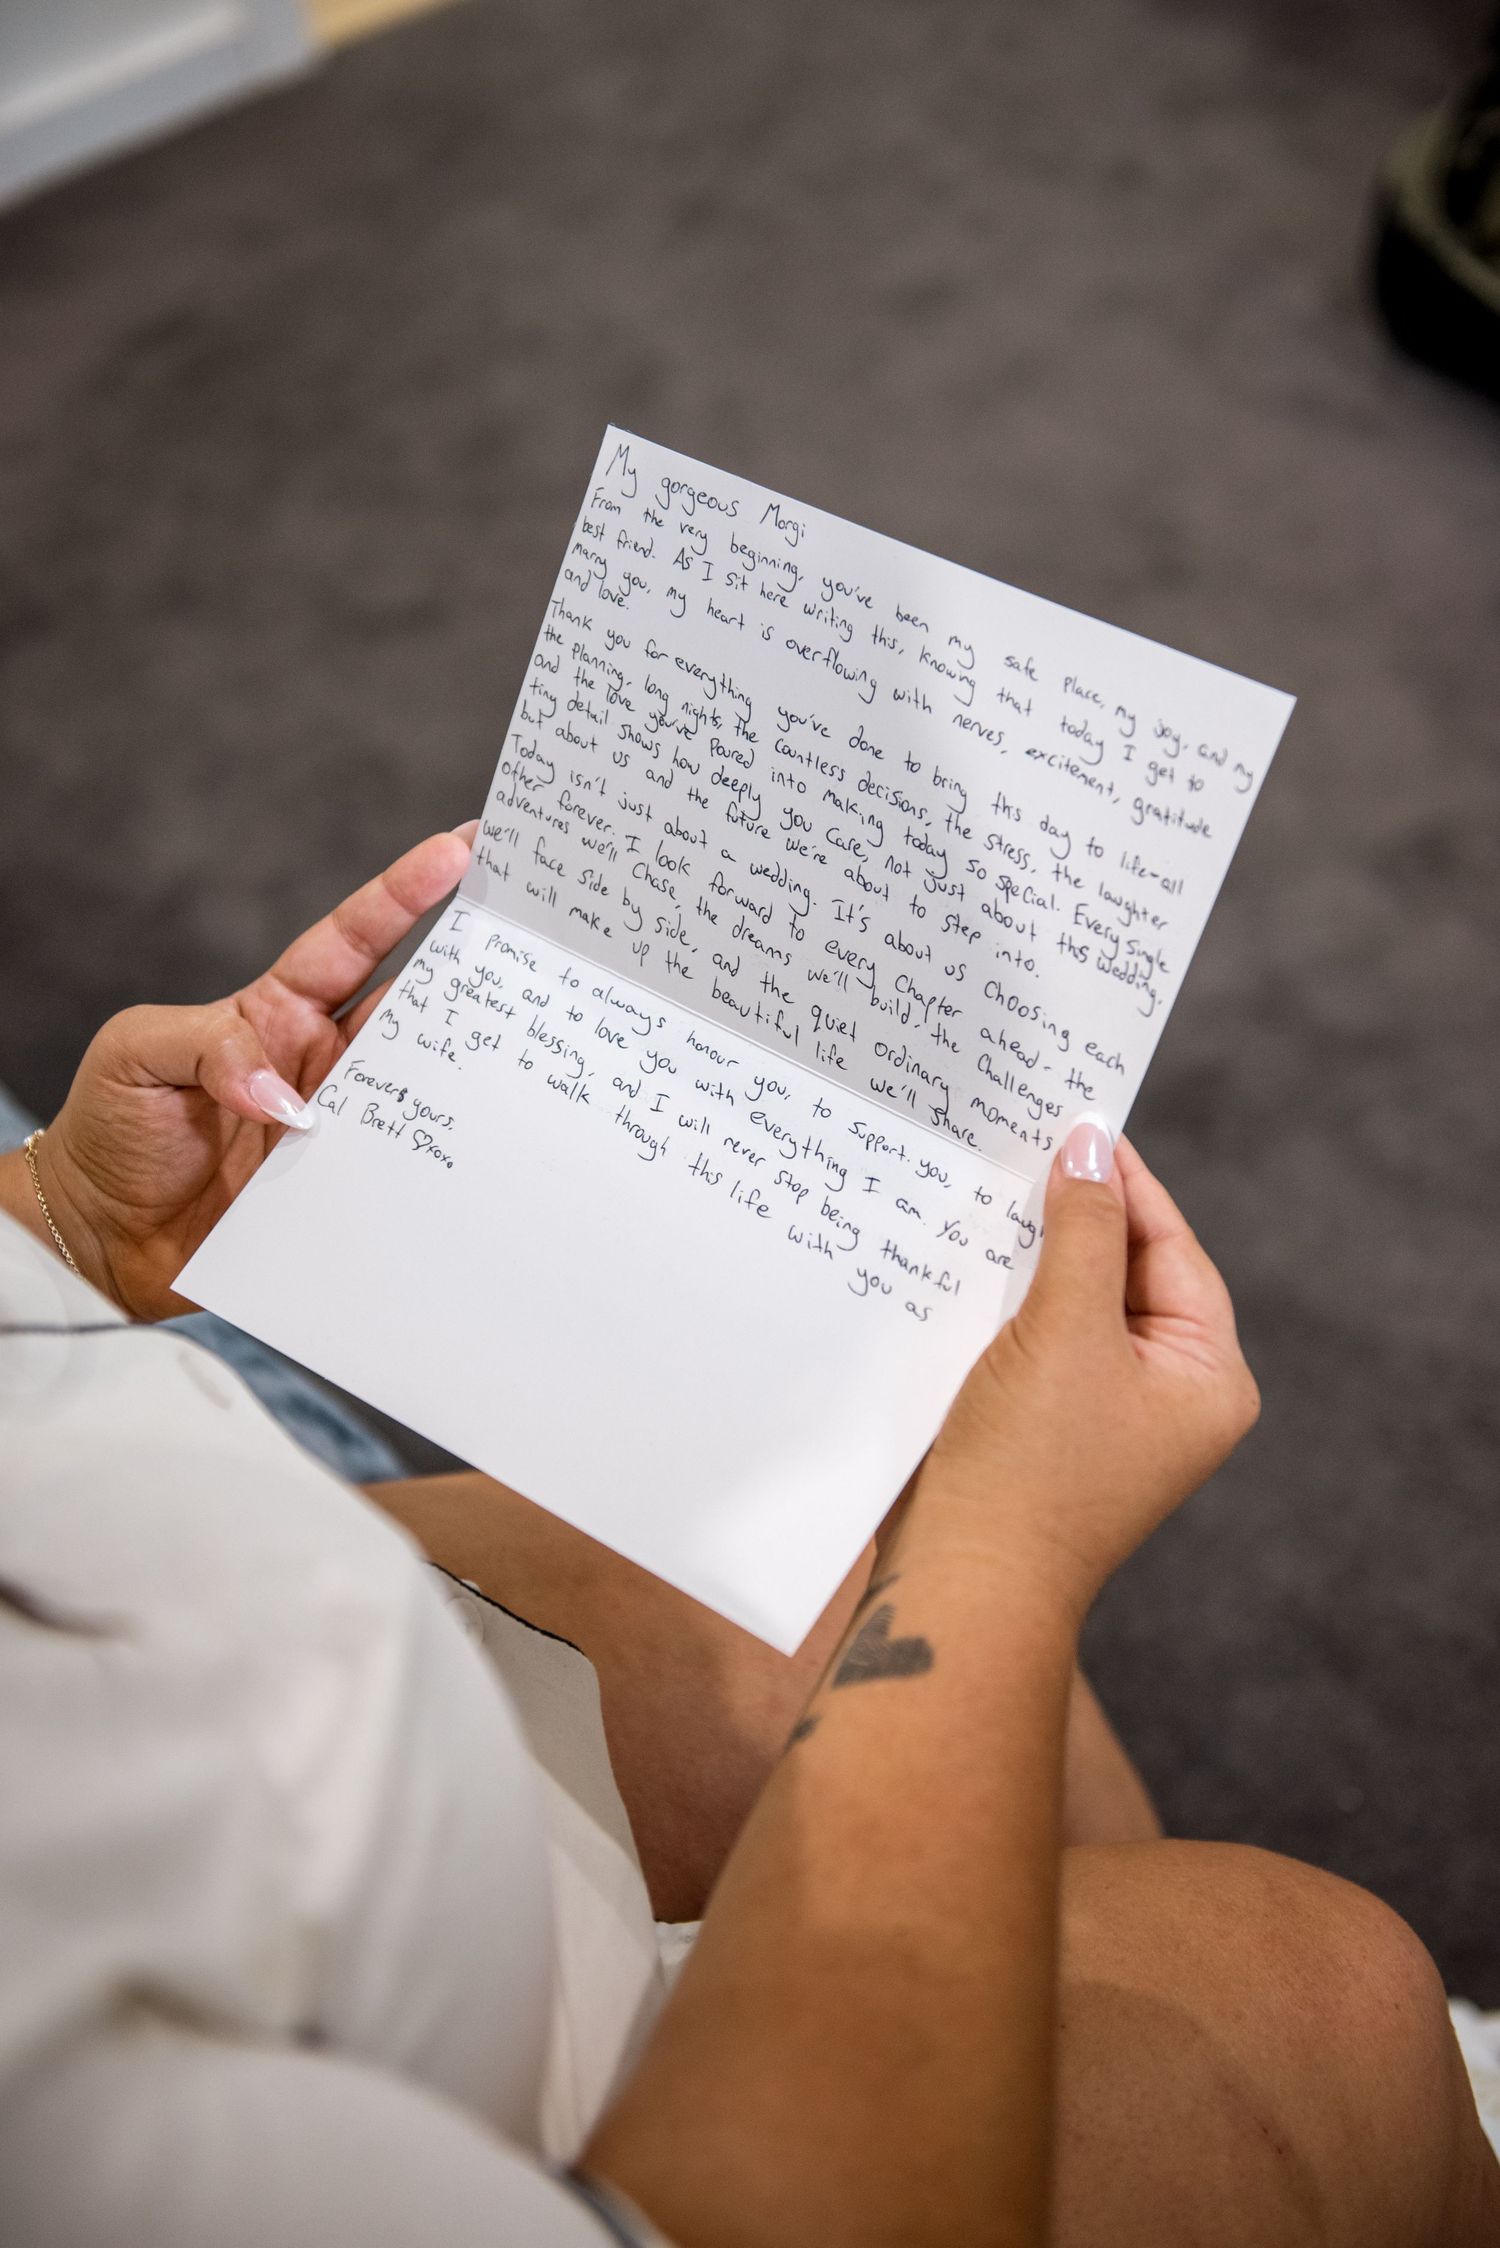 My gorgeous Morgi
From the very beginning, you've been my safe place, my joy, and my
best friend. As I sit here writing this, knowing that today I get to
marry you, my heart is overflowing with nerves, excitement, gratitude
and love.
Thank you for everything you've done to bring this day to life-all
the planning, long nights, the countless decisions, the stress, the laughter
and the love you've poured into making today so special. Every single
tiny detail shows how deeply you care, not just about this wedding,
but about us and the future we're about to step into.
Today isn't just about a wedding. It's about us choosing each
other forever. I look forward to every chapter ahead- the
adventures we'll chase, the dreams we'll build, the challenges
we'll face side by side, and the quiet ordinary moments
that will make up the beautiful life we'll share.
I promise to always honour you, to support you, to laugh
with you, and to love you with everything I am. You are
my greatest blessing, and I will never stop being thankful
that I get to walk through this life with you as
my wife.
Forever yours,
Cal Brett ♡xoxo